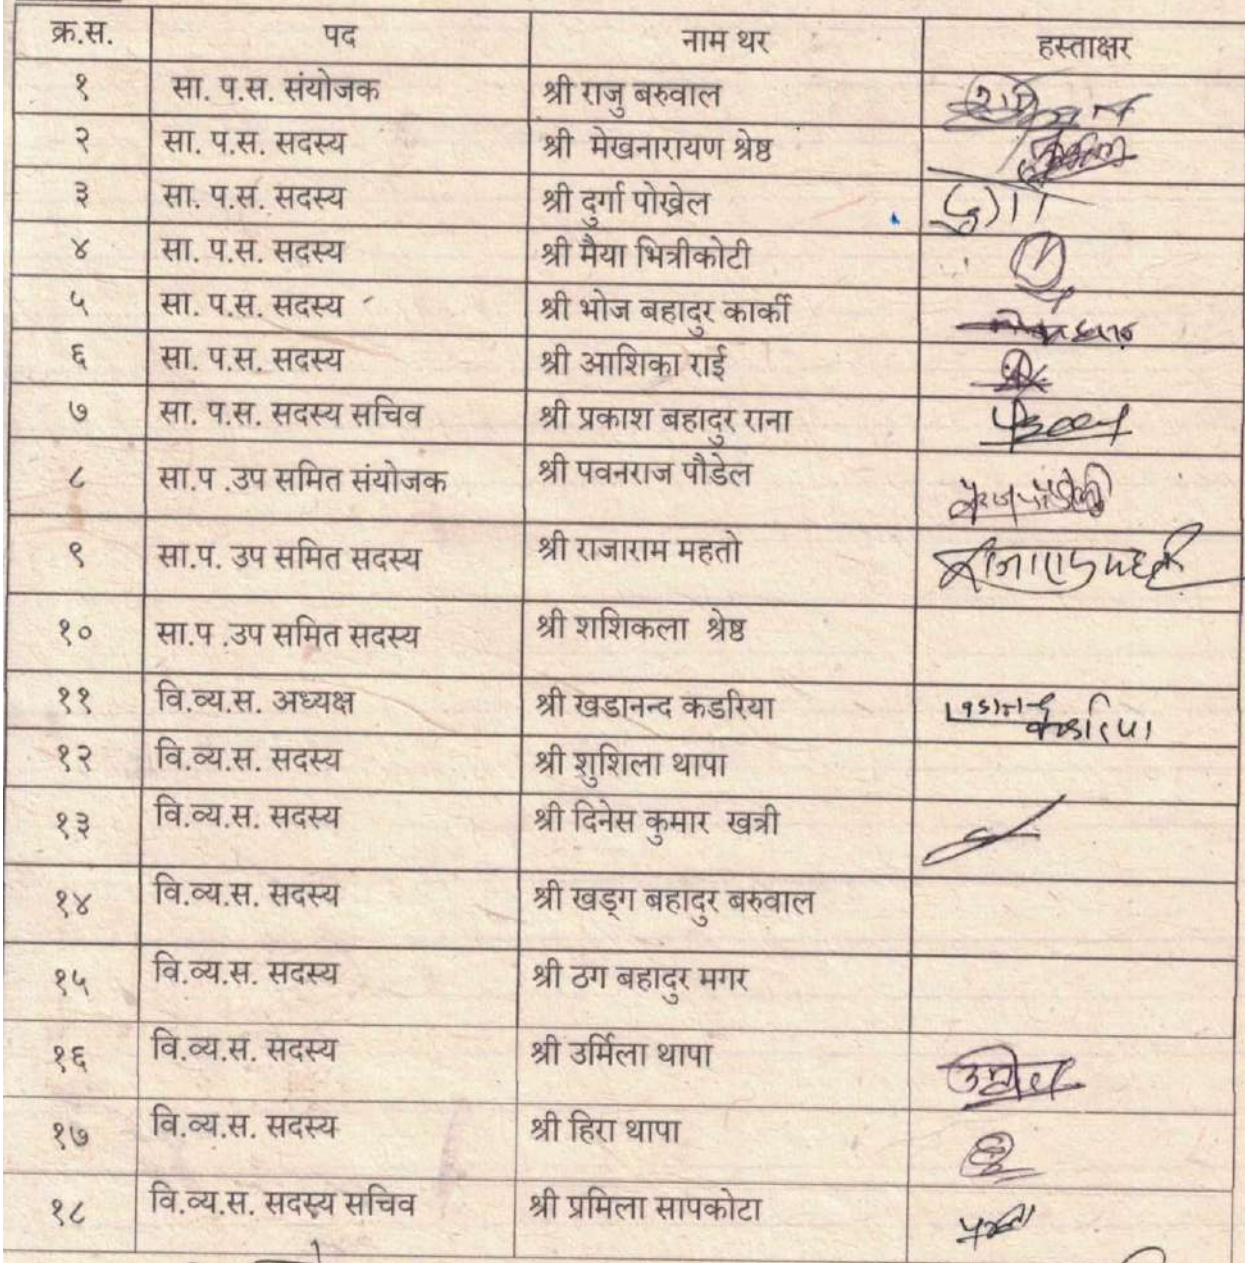 क्र.स. पद नाम थर हस्ताक्षर
१ सा. प.स. संयोजक श्री राजु बरुवाल
२ सा. प.स. सदस्य श्री मेखनारायण श्रेष्ठ
३ सा. प.स. सदस्य श्री दुर्गा पोख्रेल
४ सा. प.स. सदस्य श्री मैया भित्रीकोटी
५ सा. प.स. सदस्य श्री भोज बहादुर कार्की
६ सा. प.स. सदस्य श्री आशिका राई
७ सा. प.स. सदस्य सचिव श्री प्रकाश बहादुर राना
८ सा.प .उप समित संयोजक श्री पवनराज पौडेल
९ सा.प. उप समित सदस्य श्री राजाराम महतो राजाराम महतो
१० सा.प .उप समित सदस्य श्री शशिकला श्रेष्ठ
११ वि.व्य.स. अध्यक्ष श्री खडानन्द कडरिया
१२ वि.व्य.स. सदस्य श्री शुशिला थापा
१३ वि.व्य.स. सदस्य श्री दिनेस कुमार खत्री
१४ वि.व्य.स. सदस्य श्री खड्ग बहादुर बरुवाल
१५ वि.व्य.स. सदस्य श्री ठग बहादुर मगर
१६ वि.व्य.स. सदस्य श्री उर्मिला थापा
१७ वि.व्य.स. सदस्य श्री हिरा थापा
१८ वि.व्य.स. सदस्य सचिव श्री प्रमिला सापकोटा